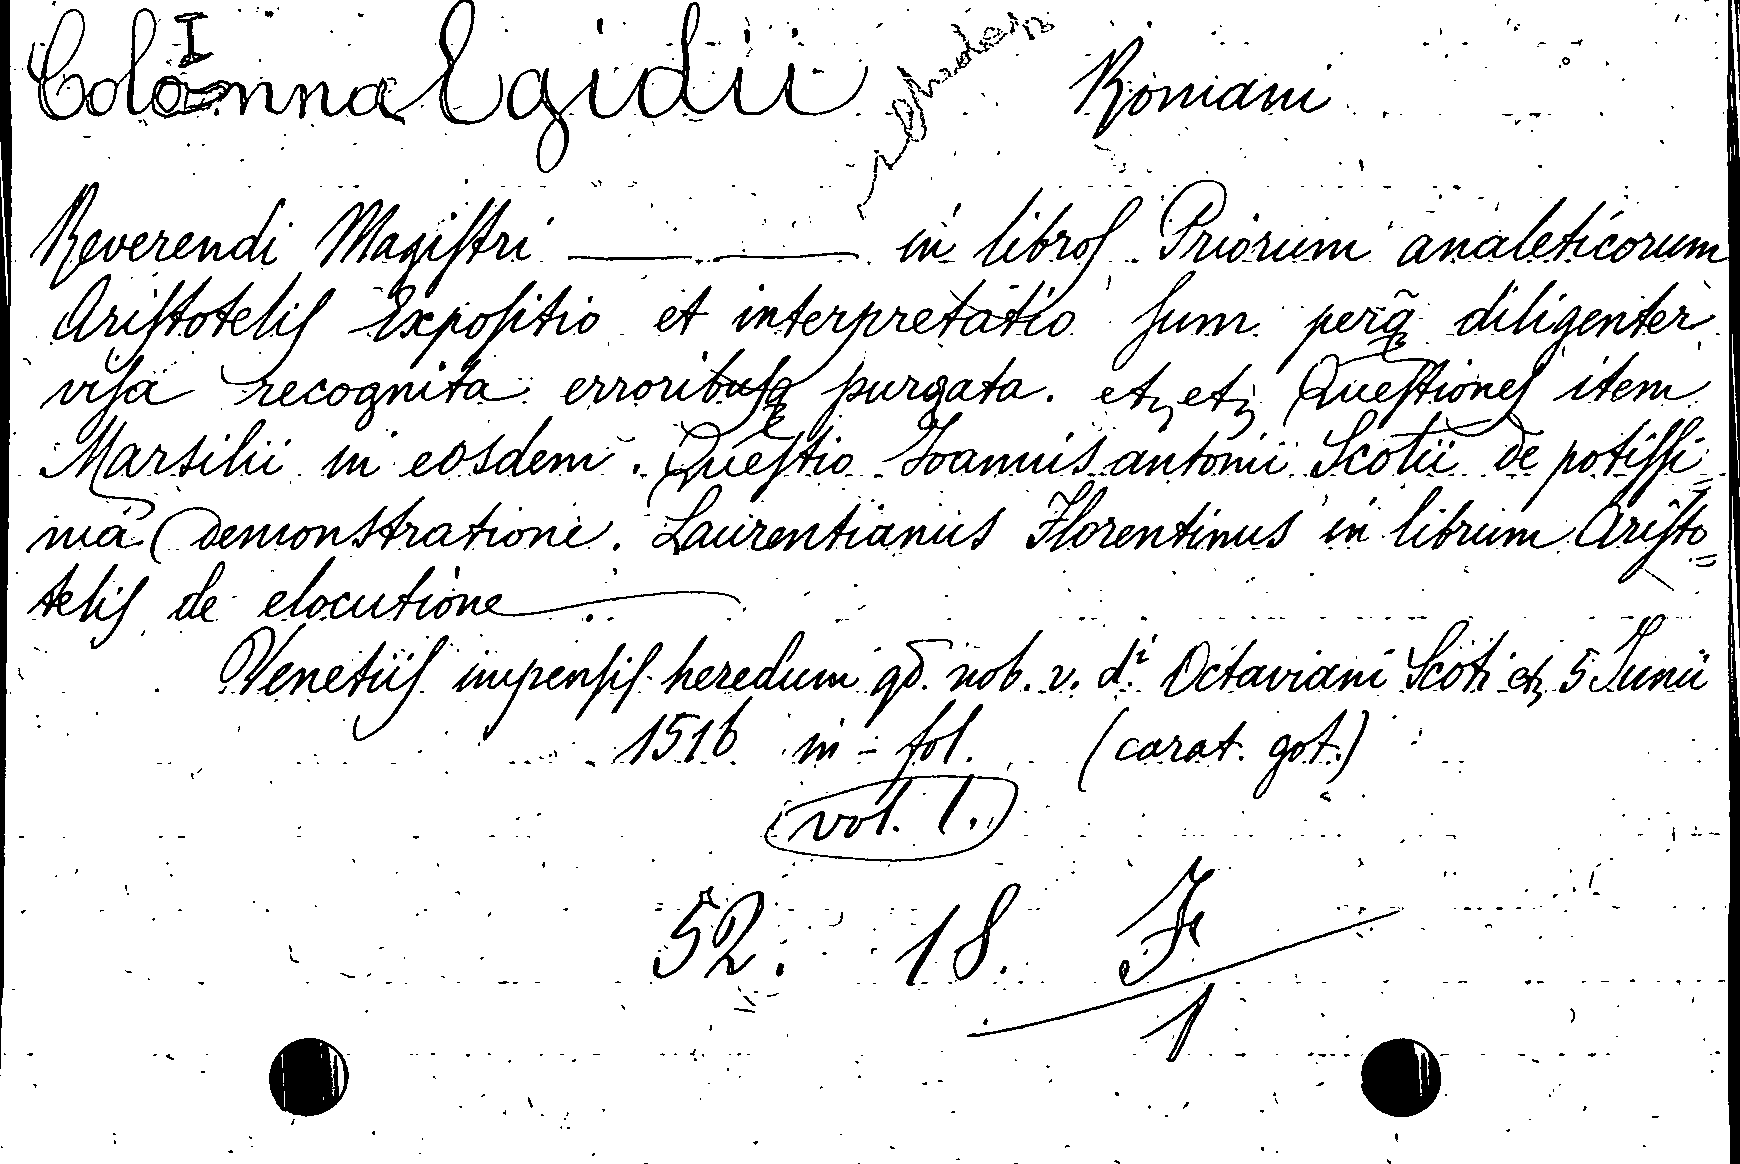 Colonna Egidii Romani
I
Reverendi Magiſtri ——— in libroſ Priorum analeticorum
Ariſtoteliſ Expoſitio et interpretatio ſum perq̃ diligenter
viſa recognita erroribuſq purgata. etc, etc; Queſtioneſ item
Marsilii in eosdem. Queſtio Ioannis antonii Scotii de potiſſi=
ma Demonstratione. Laurentianus Florentinus in librum Ariſto=
teliſ de elocutione
Venetiiſ impenſiſ heredum qđ. nob. v. dⁱ. Octaviani Scoti etc, 5 Iunii
1516 in-fol. (carat. got.)
vol. 1.
52. 18. F
1